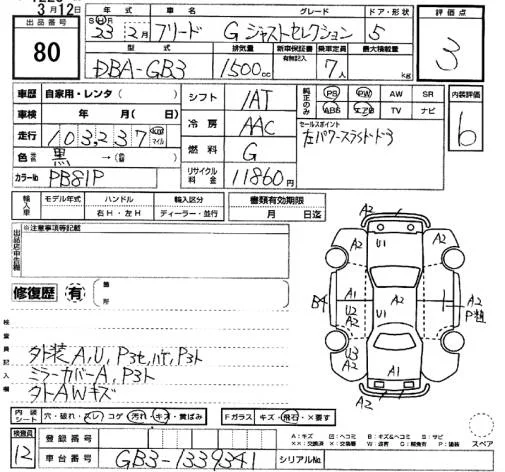 3月12日
出品番号
80
年式
S H R 23年 2月
車名
フリード
グレード
G ジャストセレクション
ドア・形状
5
評価点
3
型式
DBA-GB3
排気量
1500cc
新車保証書
有無記入
乗車定員
7人
最大積載量
kg
車歴
自家用・レンタ( )
車検
年 月( 日)
走行
103,237
km マイル
色
黒
→ ( )
カラーNo
PB81P
シフト
1AT
冷房
AAC
燃料
G
リサイクル料金
11860円
純正のみ
PS PW AW SR
ABS エアB TV ナビ
セールスポイント
左パワースライドドア
内装評価
b
輸入車
モデル年式
ハンドル
右H・左H
輸入区分
ディーラー・並行
書類有効期限
月 日迄
出品店申告欄
※注意事項等記載
修復歴
有
箇所
検査員記入欄
外装A,U,P3セ,ハケ,P3ト
ミラーカバーA,P3ト
外トAWキズ
A2 U1 A2
A2 A2
B4 A1 U2 A2 A2 U1 A2 P植
U3 A2 A1 A2
A2
内装シート
穴・破れ・スレ・コゲ 汚れ・キズ・黄ばみ
Fガラス キズ・飛石・×要す
スペア
A:キズ 凹:ヘコミ B:キズ&ヘコミ S:サビ
検査員
12
登録番号
車台番号
GB3-1339341
シリアルNo.